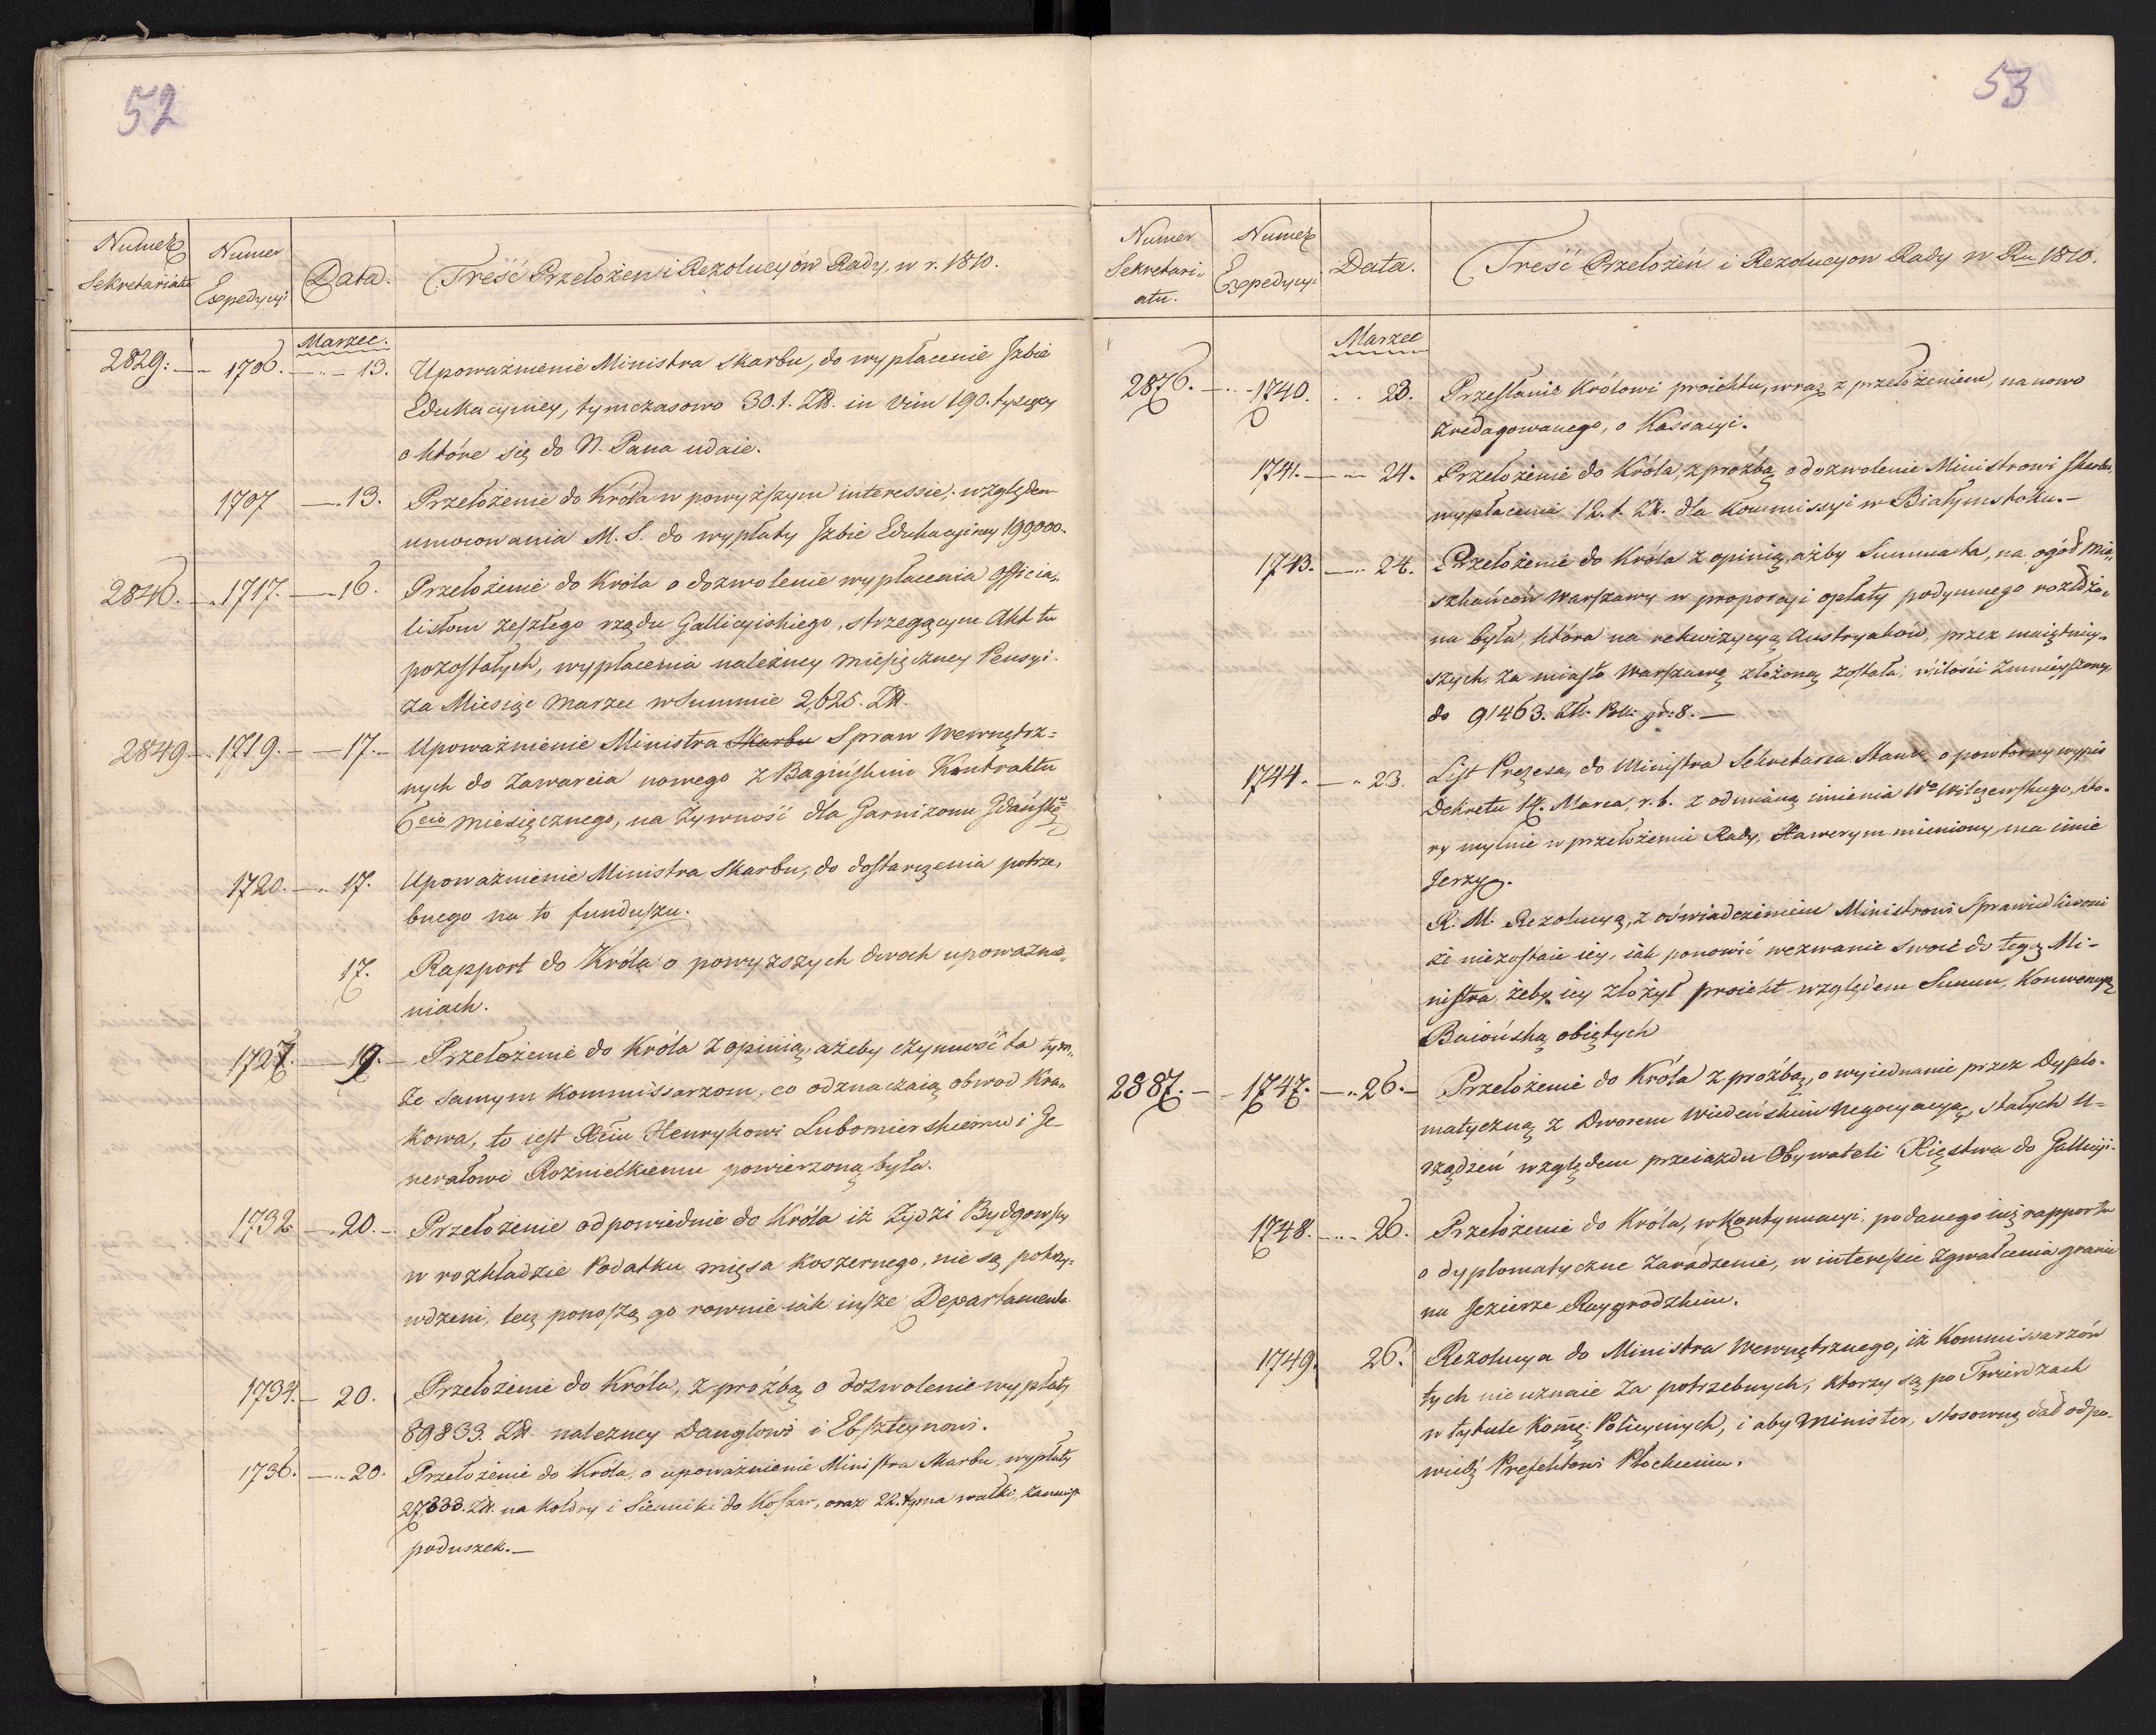 52
Numer Sekretariatu
Numer Expedycyi
Data.
Treść Przełożeń i Rezolucyów Rady, w r. 1810.
Marzec.
2829. 1706. 13. Upoważnienie Ministra Skarbu, do wypłacenie Jzbie
Edukacyiney, tymczasowo 30. t. Zł. in vim 190. tysięcy
o które się do N. Pana udaie.
1707 13. Przełożenie do Króla w powyższym interessie, względem
umocowania M. S. do wypłaty Jzbie Edukacyiney 190,000.
2846. 1717. 16. Przełożenie do Króla o dozwolenie wypłacenia Officia„
listom zeszłego rządu Gallicyiskiego, strzegącym Akt tu
pozostałych, wypłacenia należney miesięczney Pensyi.
za Miesiąc Marzec w Summie 2,625. Zł.
2849 1719. 17. Upoważnienie Ministra Skarbu Spraw Wewnętrz=
nych do zawarcia nowego z Bagińskim Kontraktu
6cio miesięcznego, na żywność dla Garnizonu Gdańskgo
1720. 17. Upoważnienie Ministra Skarbu, do dostarczenia potrze„
bnego na to funduszu.
17. Rapport do Króla o powyższych dwoch upoważnie„
niach.
1727. 19. Przełożenie do Króla z opinią, ażeby czynność ta tym„
że samym Kommissarzom, co odznaczaią obwod Kra„
kowa, to iest Xciu Henrykowi Lubomierskiemu i Ge„
nerałowi Rożnieckiemu powierzoną była.
1732 20. Przełożenie odpowiednie do Króla iż Żydzi Bydgowscy
w rozkładzie Podatku mięsa koszernego, nie są pokrzy„
wdzeni, lecz ponoszą go rownie iak insze Departamenta.
1734. 20. Przełożenie do Króla, z prożbą o dozwolenie wypłaty
89833. Zł. należney Danglowi i Ebszteynowi.
1736. 20. Przełożenie do Króla, o upoważnienie Ministra Skarbu, wypłaty
27,333. Zł. na Kołdry i Sienniki do Koszar, oraz 22. tyma wałki, zamiast
poduszek.
53
Numer Sekretari„atu.
Numer Expedycyi
Data.
Treść Przełożeń i Rezolucyow Rady w Ru 1810.
Marzec
2876. 1740. 23. Przesłanie Królowi proiektu, wraz z przełożeniem, na nowo
zredagowanego, o Kassacyi.
1741. 24. Przełożenie do Króla, z prożbą o dozwolenie Ministrowi Skarbu,
wypłacenia 12. t. Zł. dla Kommissyi w Białymstoku.
1743. 24. Przełożenie do Króla z opinią, ażby Summa ta, na ogół mie„
szkańców Warszawy w proporcyi opłaty podymnego rozłożo„
na była, która na rekwizycyą Austryaków, przez maiętniey„
szych, za miasto Warszawę złożoną została, w ilości zmnieyszoney,
do 91463. Zł. Pol: gr: 8.
1744. 23. List Prezesa, do Ministra Sekretarza Stanu, o powtorny wypis
Dekretu 14. Marca, r. b. z odmianą imienia Wo Wilczewskiego, kto„
ry mylnie w przełożeniu Rady, Xawerym mieniony, ma imie
Jerzy.
R. M. Rezolucyą, z oświadczeniem Ministrowi Sprawiedliwości
iż niezostaie iey, iak ponowić wezwanie swoie do tego Mi„
nistra, żeby iey złożył proiekt względem Summ, Konwencyą
Baiońską obiętych
2887. 1747. 26. Przełożenie do Króla z prożbą, o wyiednanie przez Dyplo„
matyczną z Dworem Wiedeńskim negocyacyą, stałych u=
rządzeń względem przeiazdu Obywateli Xięstwa do Gallicyi.
1748. 26. Przełożenie do Króla, w Kontynuacyi podanego iuż rapportu
o dyplomatyczne zaradzenie, w interesie zgwałcenia granic
na Jezierze Raygrodzkim.
1749. 26. Rezolucya do Ministra Wewnętrznego, iż Kommissarzów
tych nie uznaie za potrzebnych, ktorzy są po Twierdzach
w tytule Komę: Policyinych, i aby Minister, stosowną dał odpo„
wiedź Prefektowi Płockiemu.